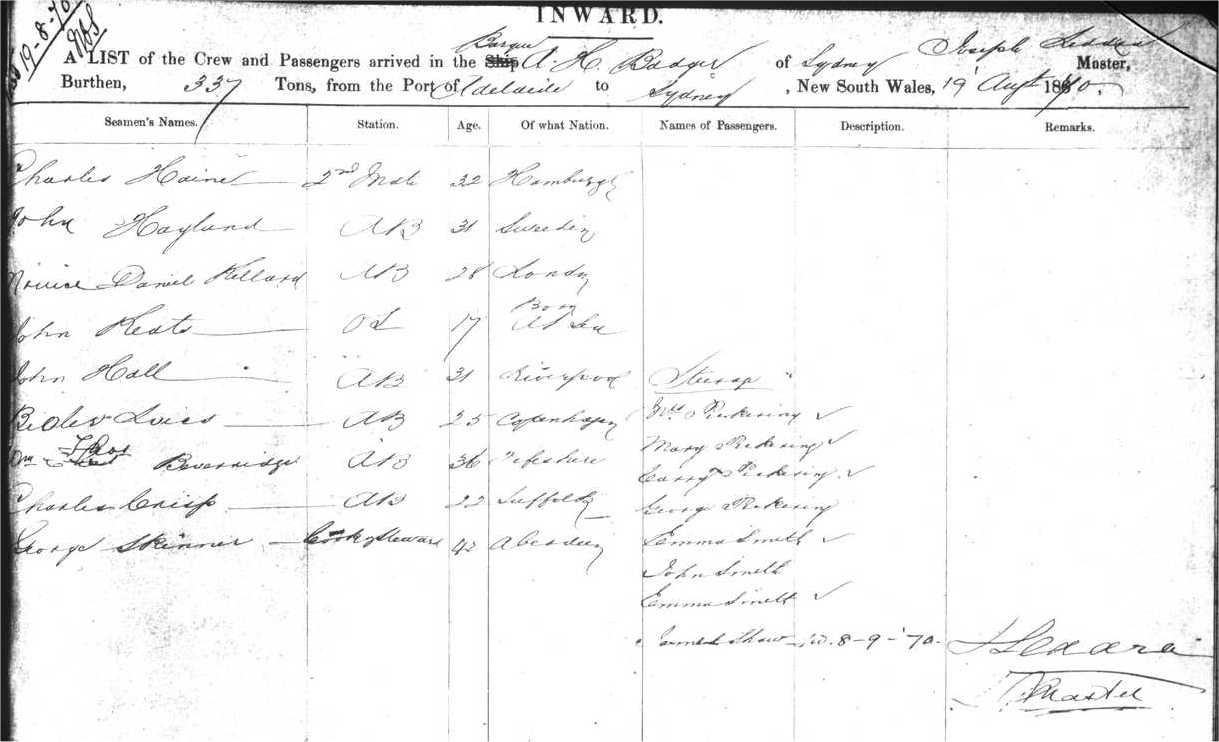 19-8-70
INWARD.
A LIST of the Crew and Passengers arrived in the Ship Barque A. H. Badger of Sydney Joseph Master,
Burthen, 337 Tons, from the Port of Adelaide to Sydney, New South Wales, 19 Augt 1870.
Seamen's Names. Station. Age. Of what Nation. Names of Passengers. Description. Remarks.
Charles Haine 2nd Mate 32 Hamburgh
John Hoglund AB 31 Sweden
Daniel Kellard AB 28 London
John Keats OS 17 Born At Sea
John Hall AB 31 Liverpool Steerage
AB 25 Copenhagen Mrs Pickering ✓
Wm Thos Beverridge AB 36 Fifeshire Mary Pickering ✓
Carry Pickering ✓
Charles Crisp AB 22 Suffolk George Pickering
George Skinner Cook & Steward 42 Aberdeen Emma Smith ✓
John Smith
Emma Smith ✓
James Shaw 8-9-'70
Master